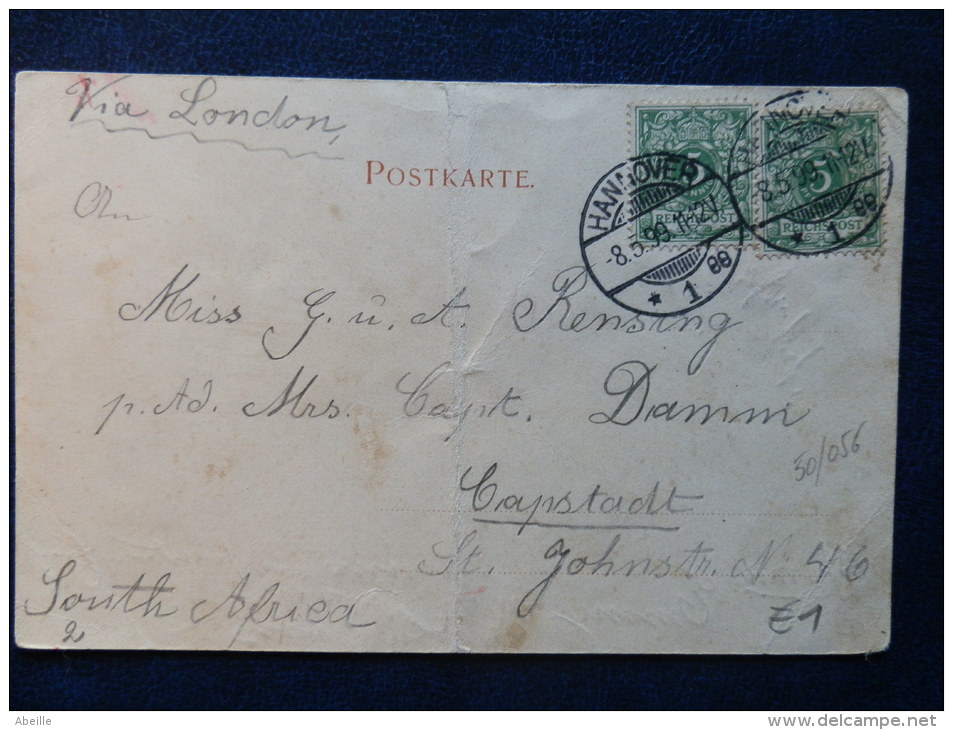 Via London,
POSTKARTE.
An
HANNOVER
-8.5.99.11-12V.
* 1 ee
REICHSPOST
HANNOVER
-8.5.99.11-12V.
* 1 ee
5
REICHSPOST
Miss G. u. A. Rensing
p. Ad. Mrs. Capt. Damm
Capstadt
St. Johnstr. No 46
South Africa
30/056
£1
2
Abeille
www.delcampe.net